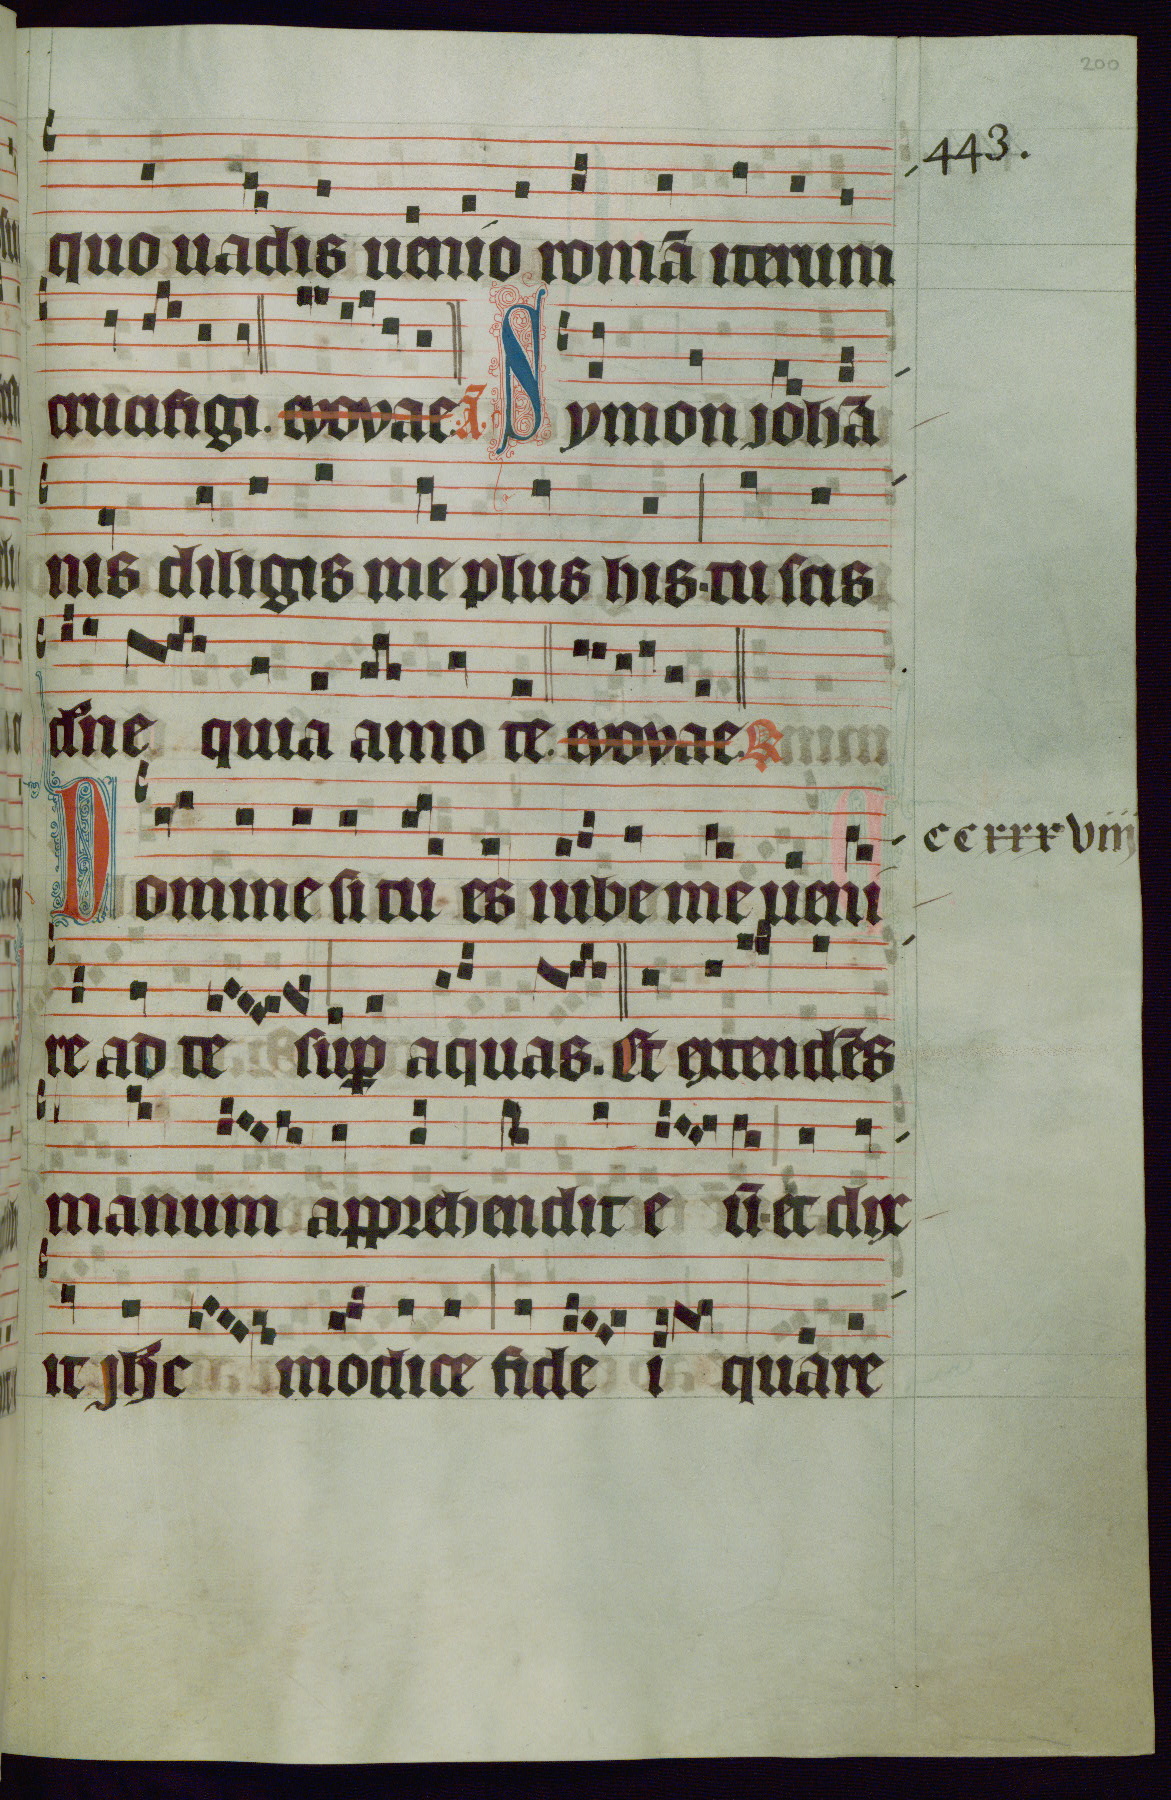 200
443.
quo uadis uenío romā iterum
crucifigi. evovae. A. Symon johā
nis diligis me plus his. tu scis
dn̄e quia amo te. evovae. R
Domine si tu es iube me ueni
ccxxxviiij
re ad te sup aquas. Et extendēs
manum apprehendit e ū. et dix
it jh̄c modice fide i quare